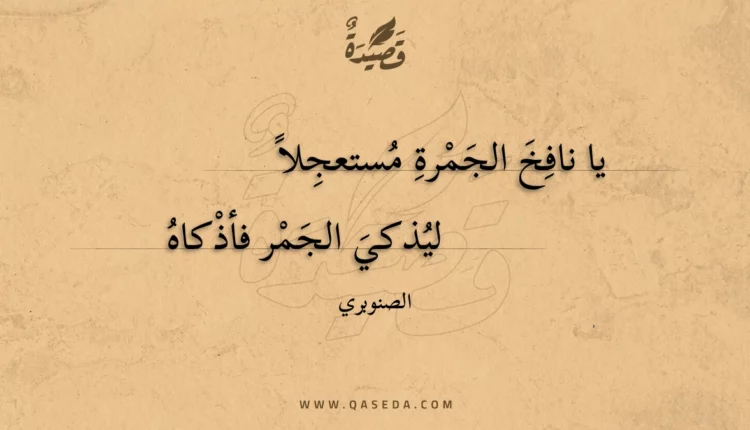 قَصِيْدَةٌ
يا نافِخَ الجَمْرةِ مُستعجِلاً
ليُذكيَ الجَمْر فأذْكاهُ
الصنوبري
WWW.QASEDA.COM